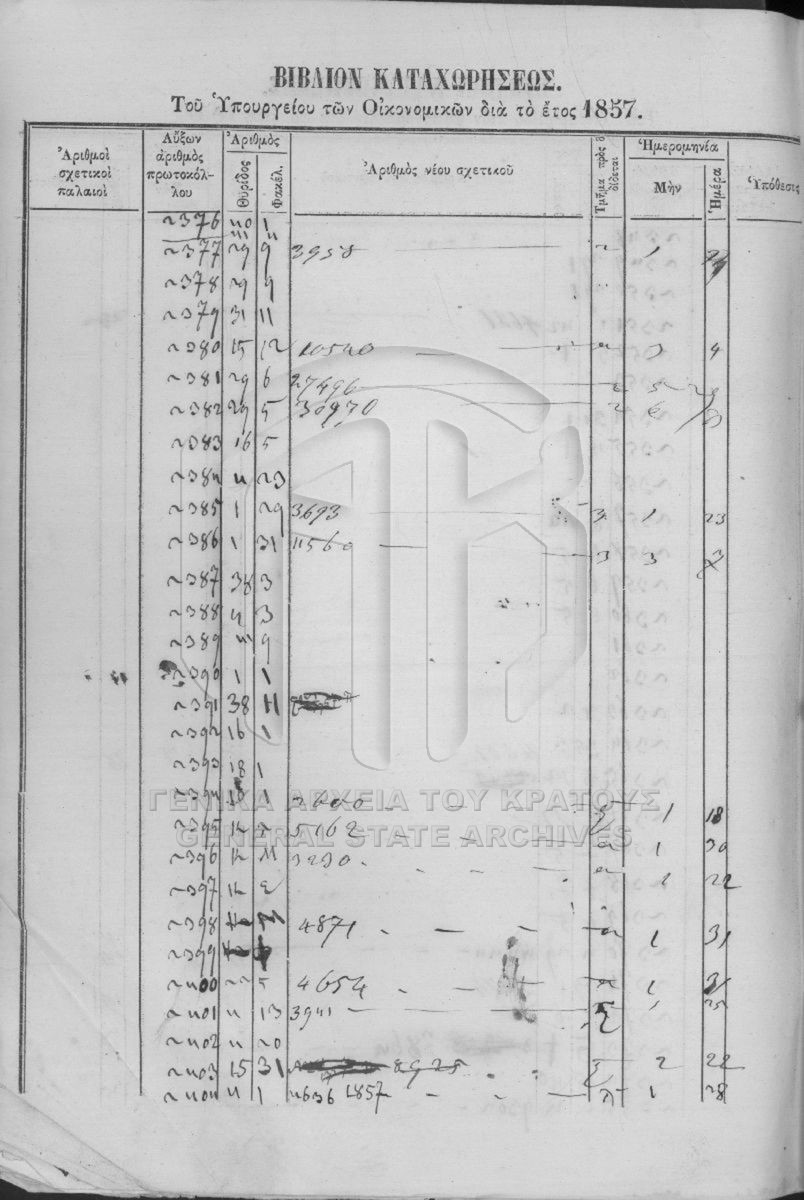 ΒΙΒΛΙΟΝ ΚΑΤΑΧΩΡΗΣΕΩΣ.
Τοῦ Ὑπουργείου τῶν Οἰκονομικῶν διὰ τὸ ἔτος 1857.
Ἀριθμοὶ σχετικοὶ παλαιοὶ
Αὔξων ἀριθμὸς πρωτοκόλλου
Ἀριθμὸς
Θυρίδος
Φακέλ.
Ἀριθμὸς νέου σχετικοῦ
Τμῆμα πρὸς δ δίδεται
Ἡμερομηνία
Μὴν
Ἡμέρα
Ὑπόθεσις
2376 1
2377 29 9 3958 2 1
2378 29 9
2379 31 11
2380 15 12 10540 4
2381 29 6 27496 2 5
2382 29 5 30970 2 6
2383 16 5
2384 4 23
2385 1 29 3693 3 1 23
2386 1 31 11560 3 3
2387 38 3
2388 4 3
2389 9
2390 1 1
2391 38 11
2392 16 1
2393 18 1
2394 1 2600 1 18
2395 5162 1 30
2396 3230 1 22
2397
2398 4871 1 31
2399
2400 5 4654 1 31
2401 4 13 3941 1 25
2402 4 20
2403 15 31 8925 2 22
2404 4 1 4636 1857 1 28
ΓΕΝΙΚΑ ΑΡΧΕΙΑ ΤΟΥ ΚΡΑΤΟΥΣ
GENERAL STATE ARCHIVES